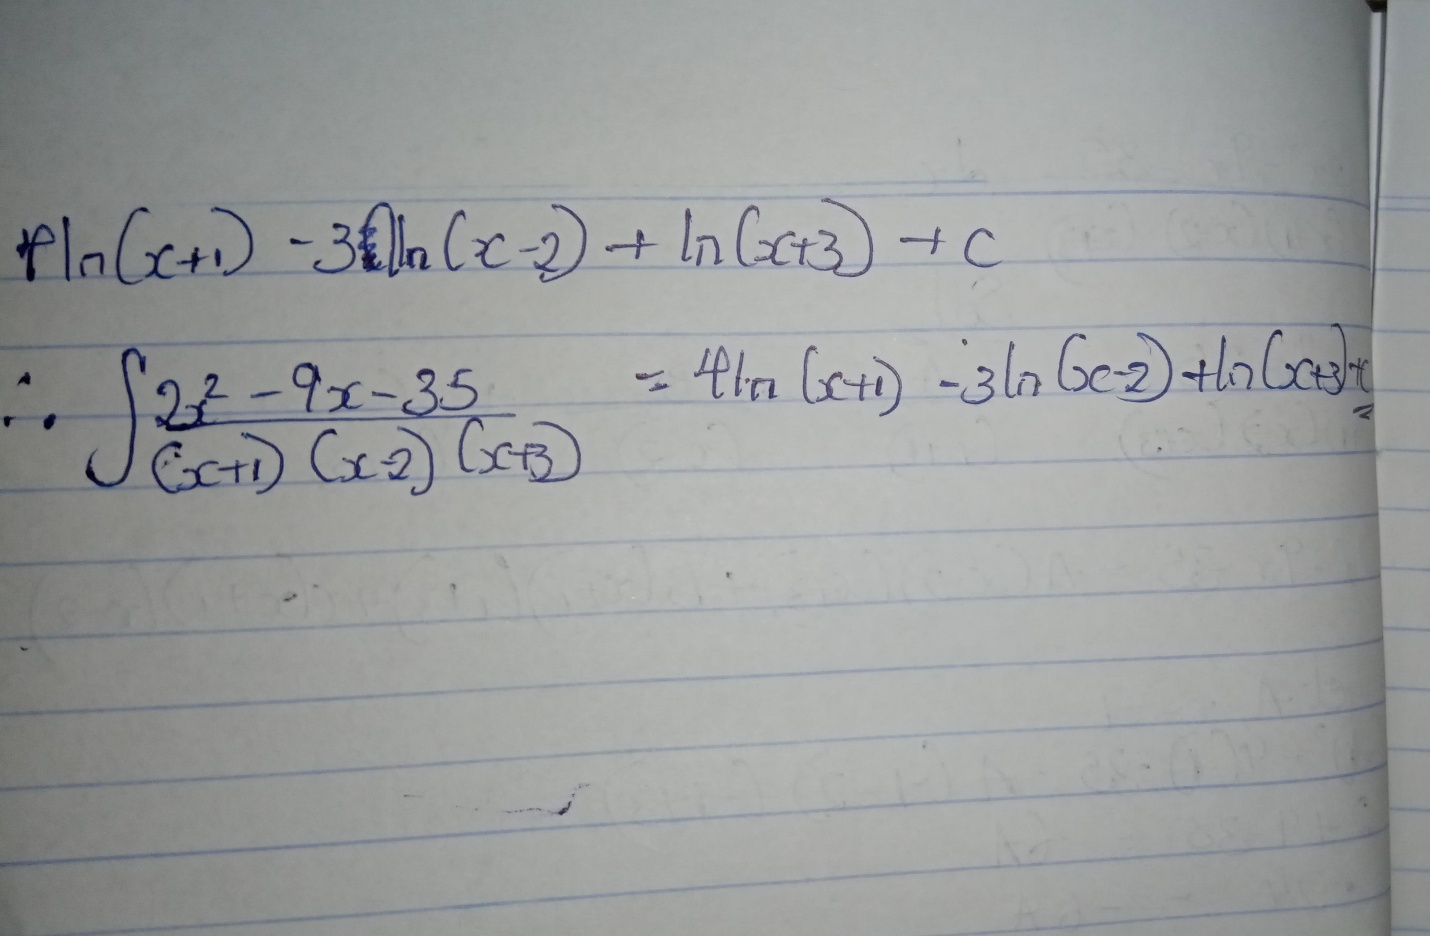 4ln(x+1) -3ln(x-2) + ln(x+3) + c
∴ ∫ 2x² - 9x - 35 / (x+1) (x-2) (x+3) = 4ln(x+1) -3ln(x-2) + ln(x+3) + c